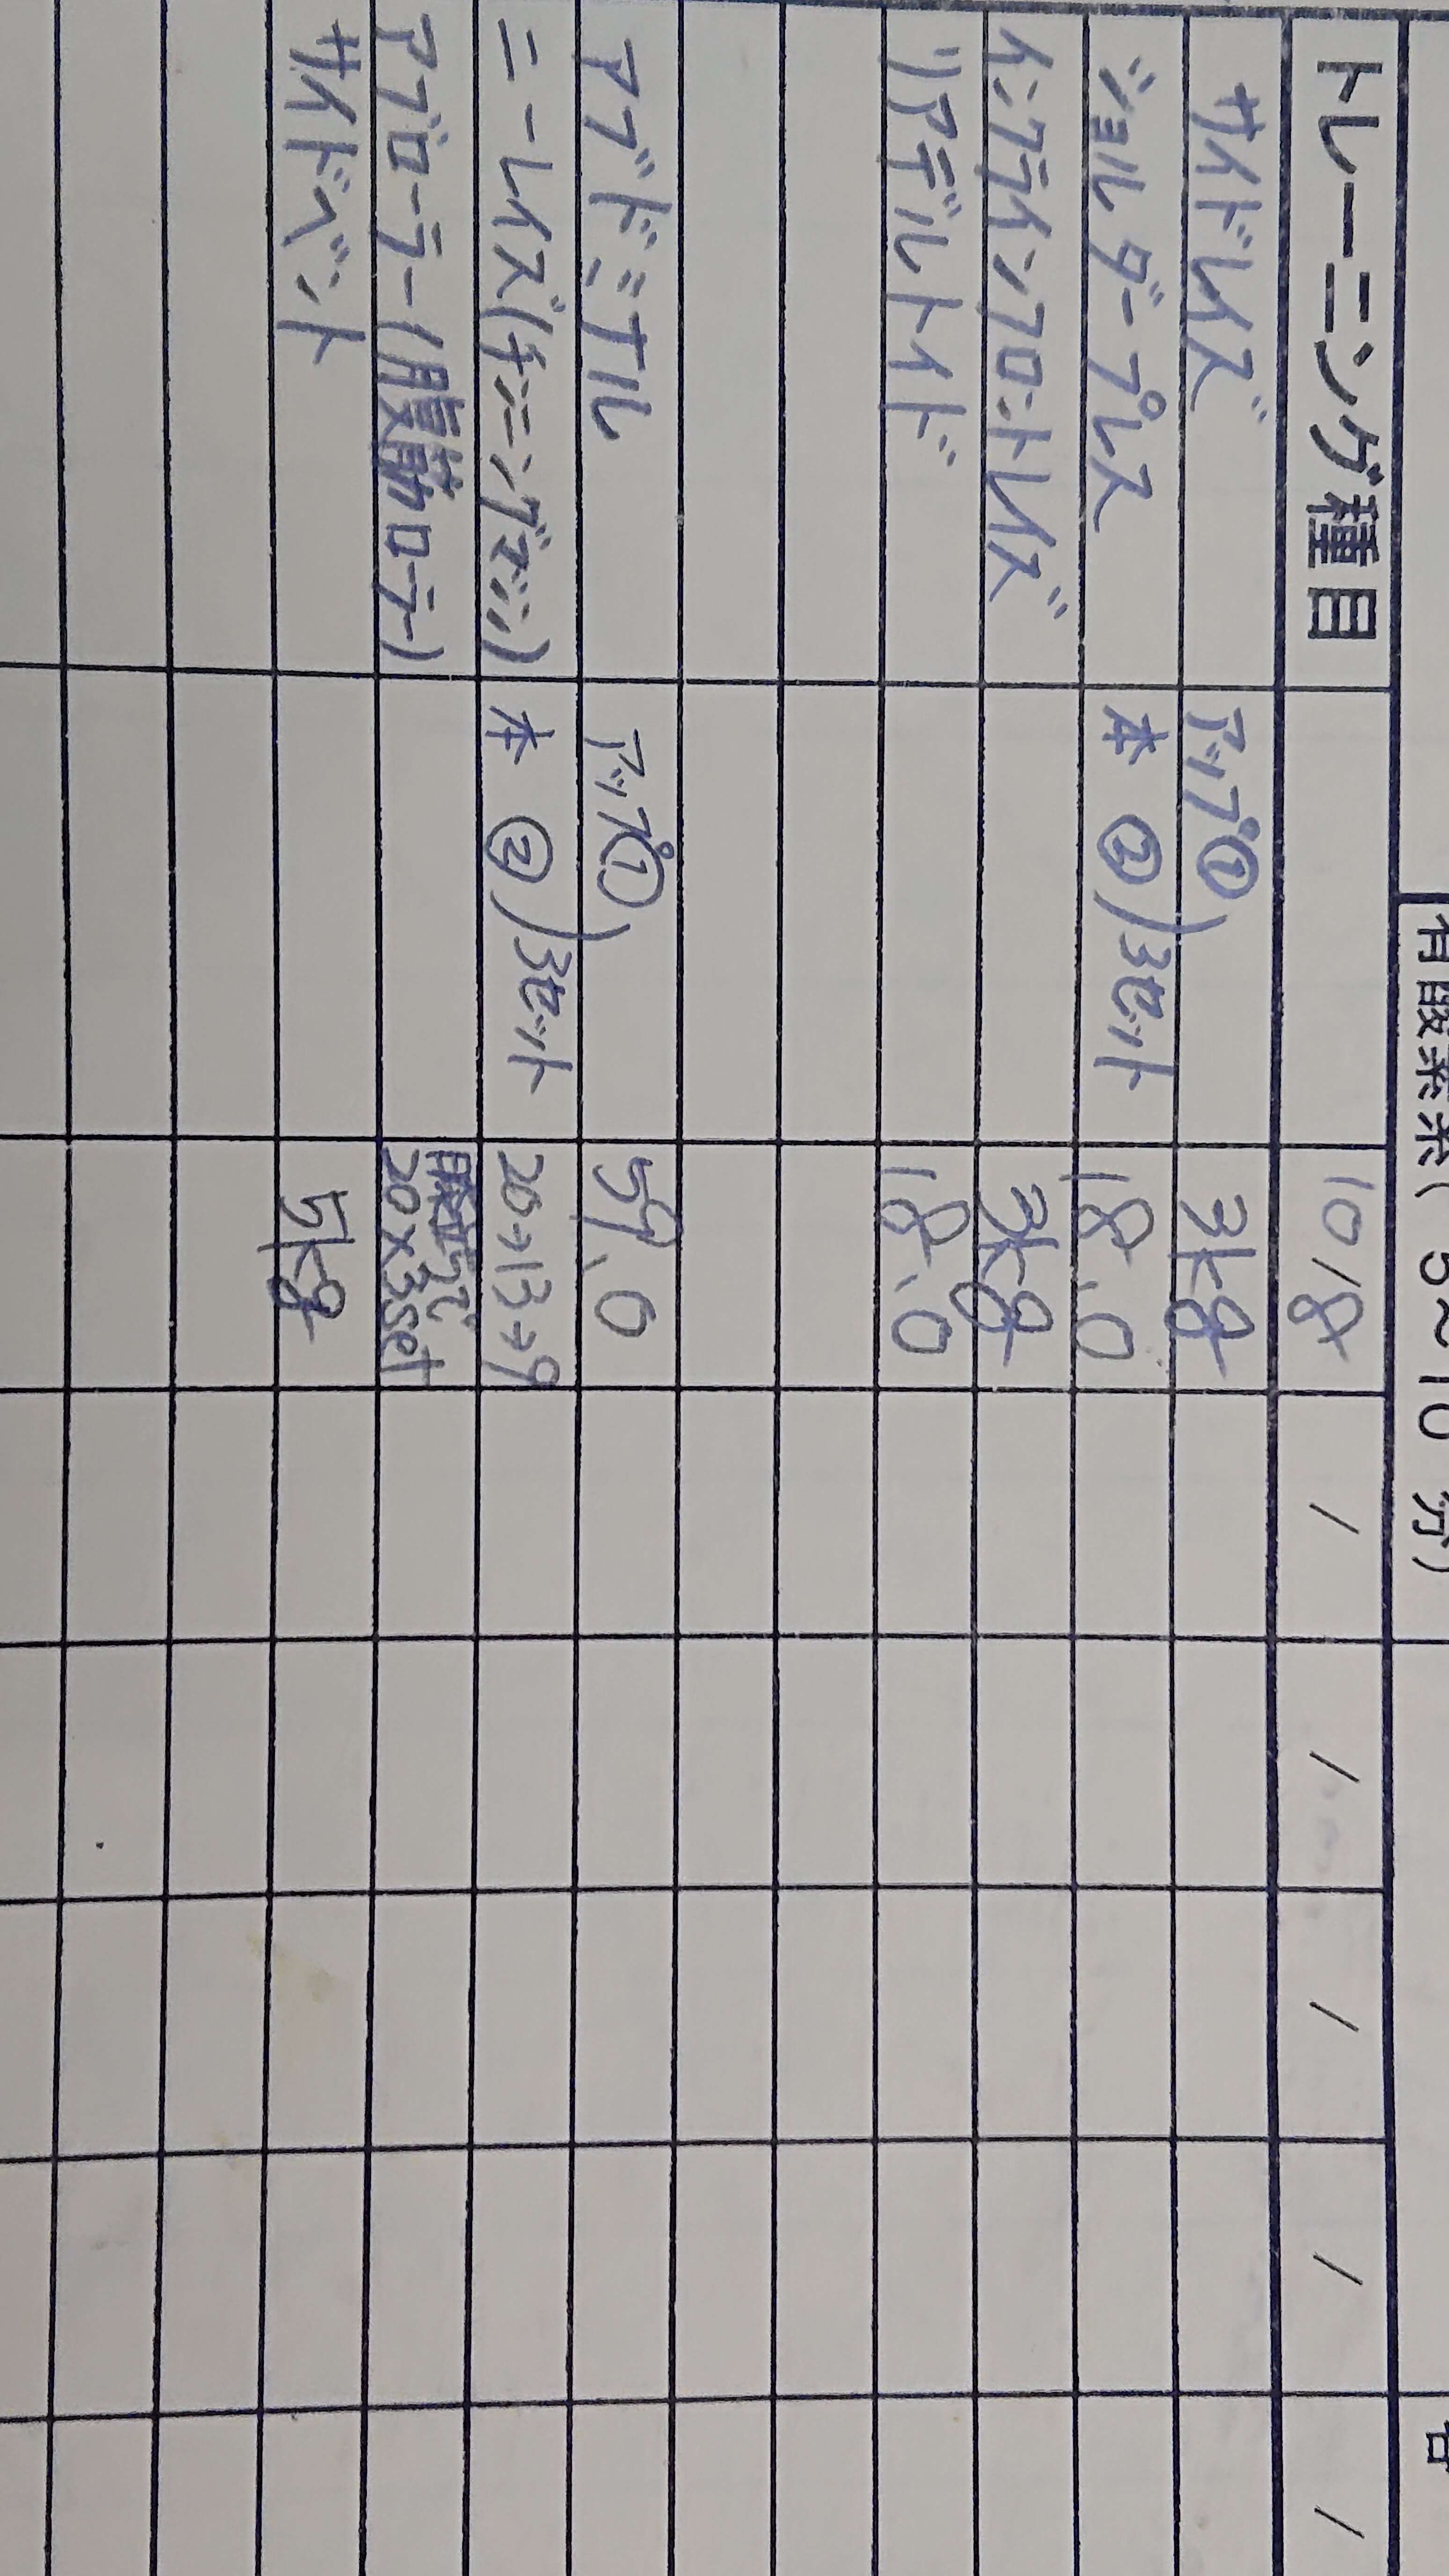 有酸素系( 5~10 分)
トレーニング種目 10/8 / / / / /
サイドレイズ アップ① 3kg
ショルダープレス 本 ②)3セット 18.0
インクラインフロントレイズ 3kg
リアデルトイド 18.0
アブドミナル アップ① 59.0
ニーレイズ(チンニングマシン) 本 ②)3セット 20→13→9
アブローラー(腹筋ローラー) 膝立ちで
20×3set
サイドベント 5kg